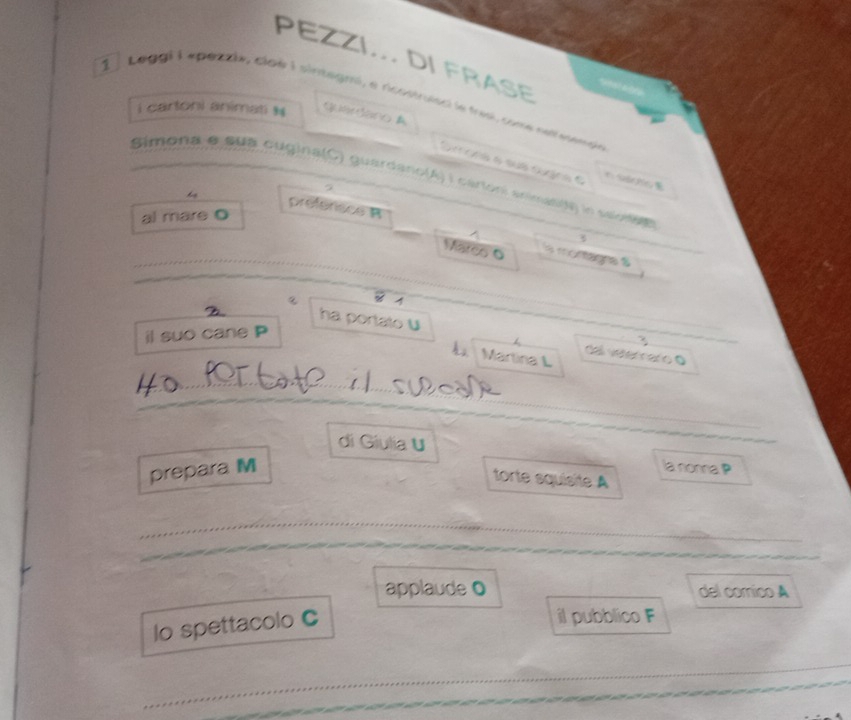 PEZZI... DI FRASE
1 Leggi i «pezzi», cioè i sintagmi, e ricostruisci le frasi, come nell'esempio.
i cartoni animati N guardano A Simona e sua cugina C in salotto
Simona e sua cugina(C) guardano(A) i cartoni animati(N) in salotto
4 5 1 3
al mare O preferisce R Marco O la montagna S
2 1 3
il suo cane P ha portato U Martina L dal veterinario O
Ha portato il suo cane
prepara M di Giulia U torte squisite A la nonna P
lo spettacolo C applaude O il pubblico F del comico A